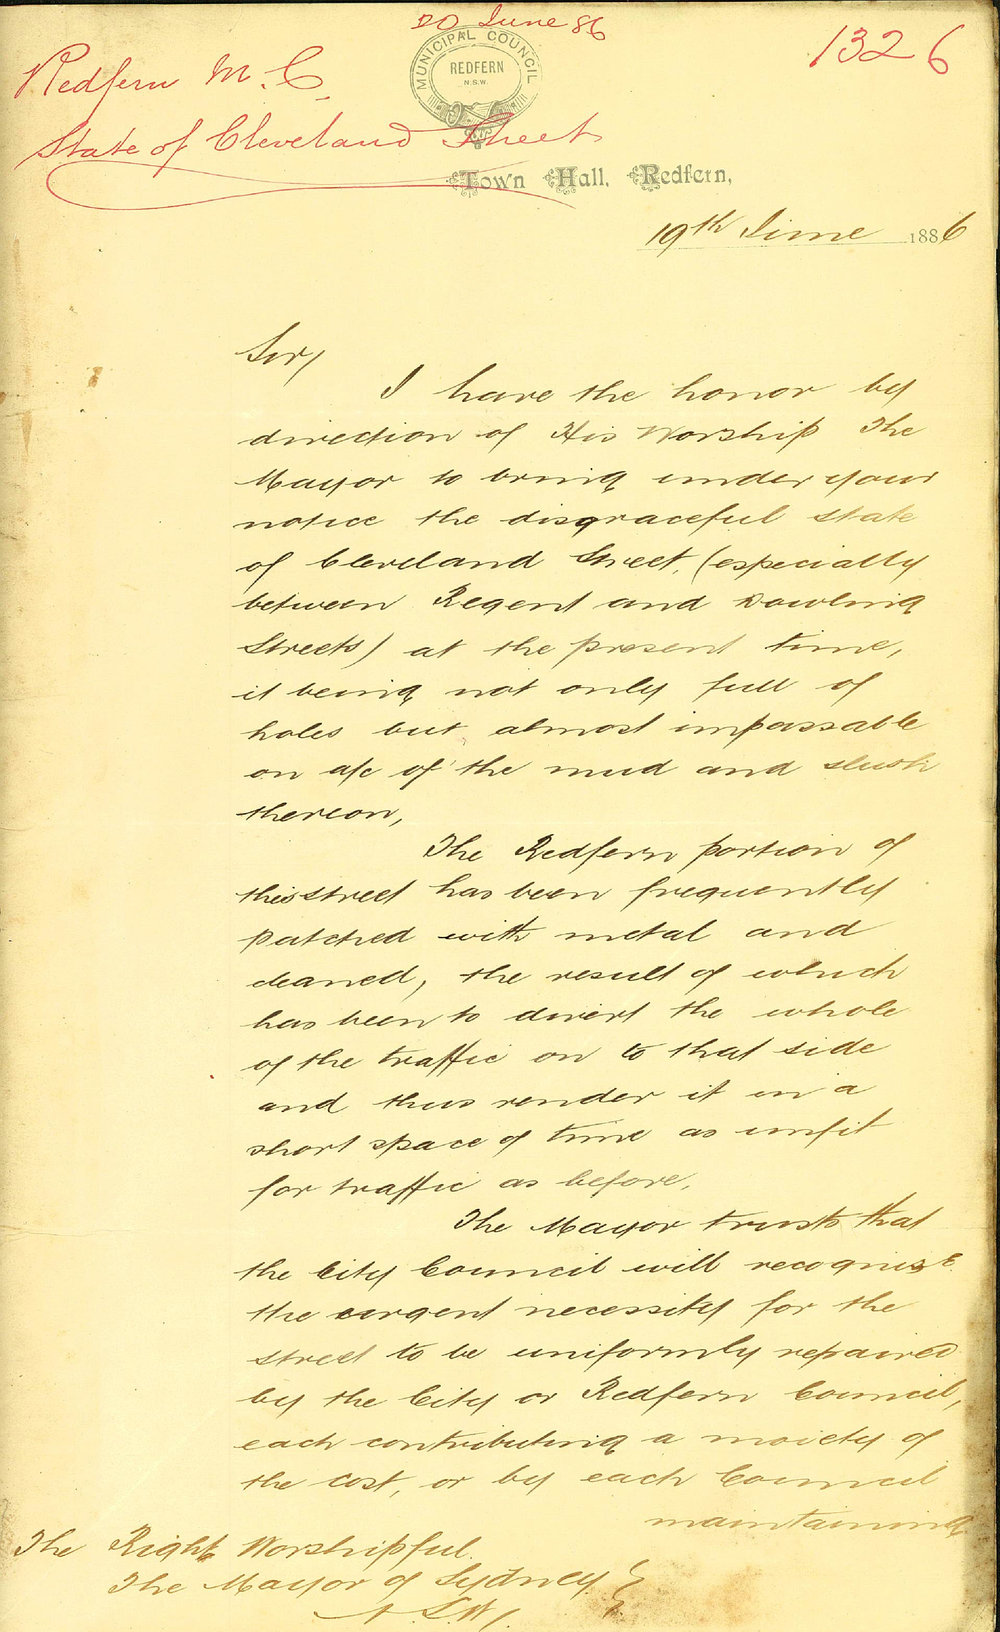 20 June 86
1326
Redfern M. C.
State of Cleveland Street
MUNICIPAL COUNCIL
REDFERN
N.S.W.
Town Hall, Redfern,
19th June 1886
Sir,
I have the honor by
direction of His Worship The
Mayor to bring under your
notice the disgraceful state
of Cleveland Street, (especially
between Regent and Dowling
Streets) at the present time,
it being not only full of
holes but almost impassable
on a/c of the mud and slush
thereon,
The Redfern portion of
this street has been frequently
patched with metal and
cleaned, the result of which
has been to divert the whole
of the traffic on to that side
and thus render it in a
short space of time as unfit
for traffic as before.
The Mayor trusts that
the City Council will recognise
the urgent necessity for the
street to be uniformly repaired
by the City or Redfern Council,
each contributing a moiety of
the cost, or by each Council
maintaining
The Right Worshipful
The Mayor of Sydney
N.S.W.